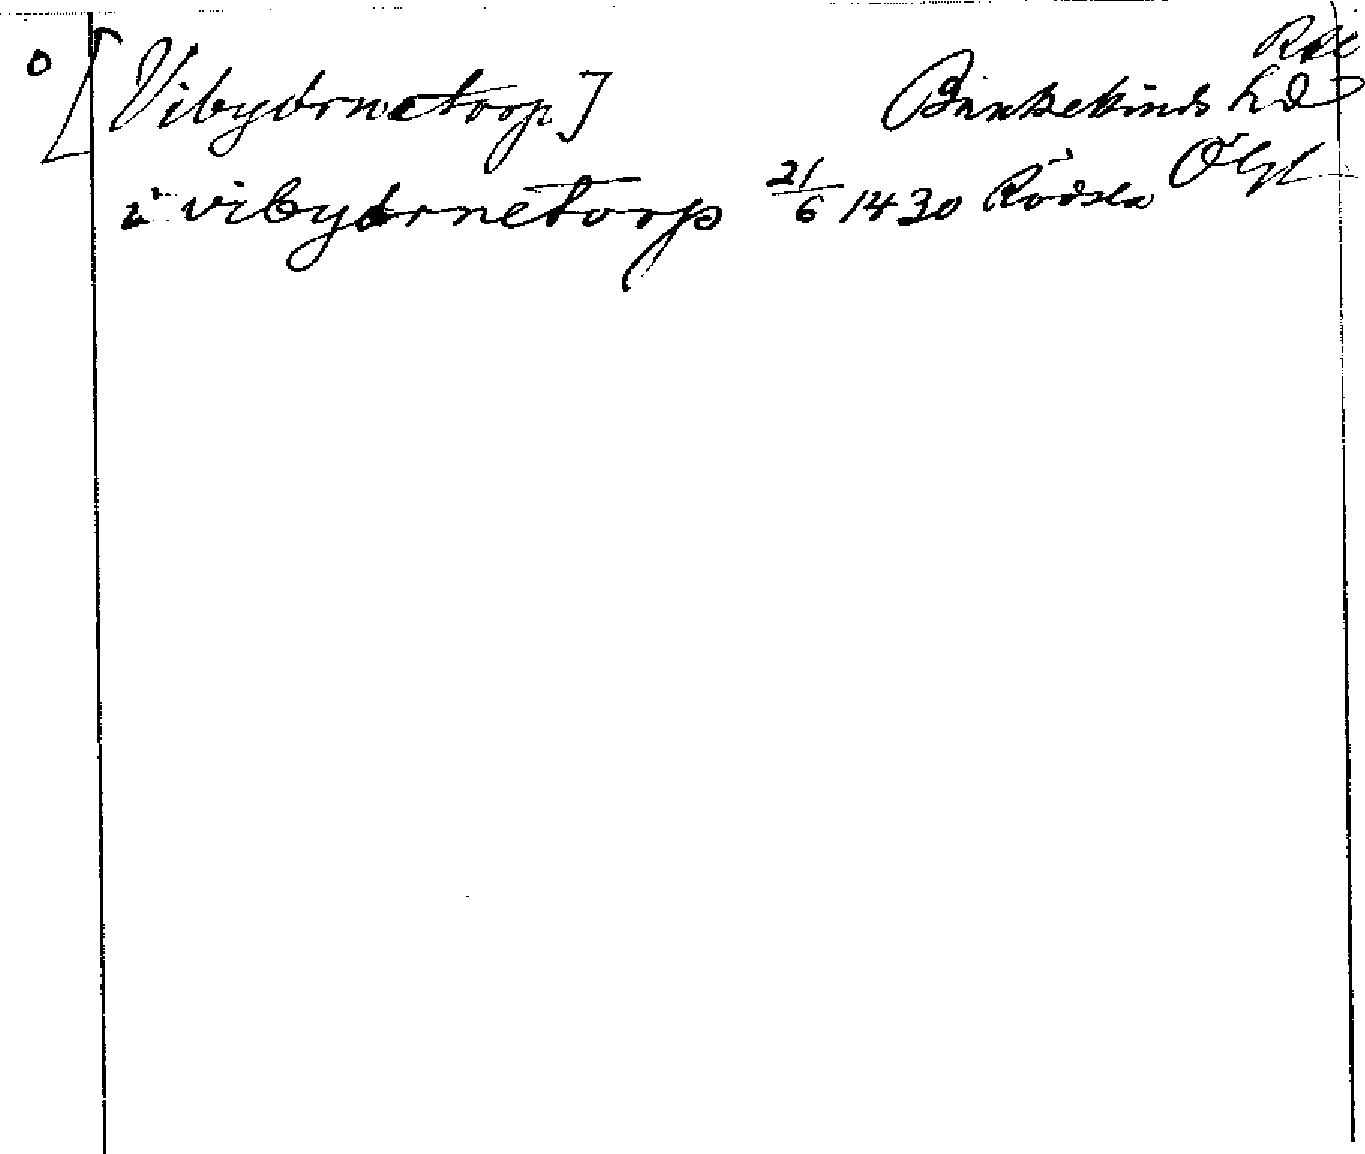 o [Vibyørnetorp] Bankekinds hd
i vibyørnetorp 21/6 1430 Rödsla Ögl